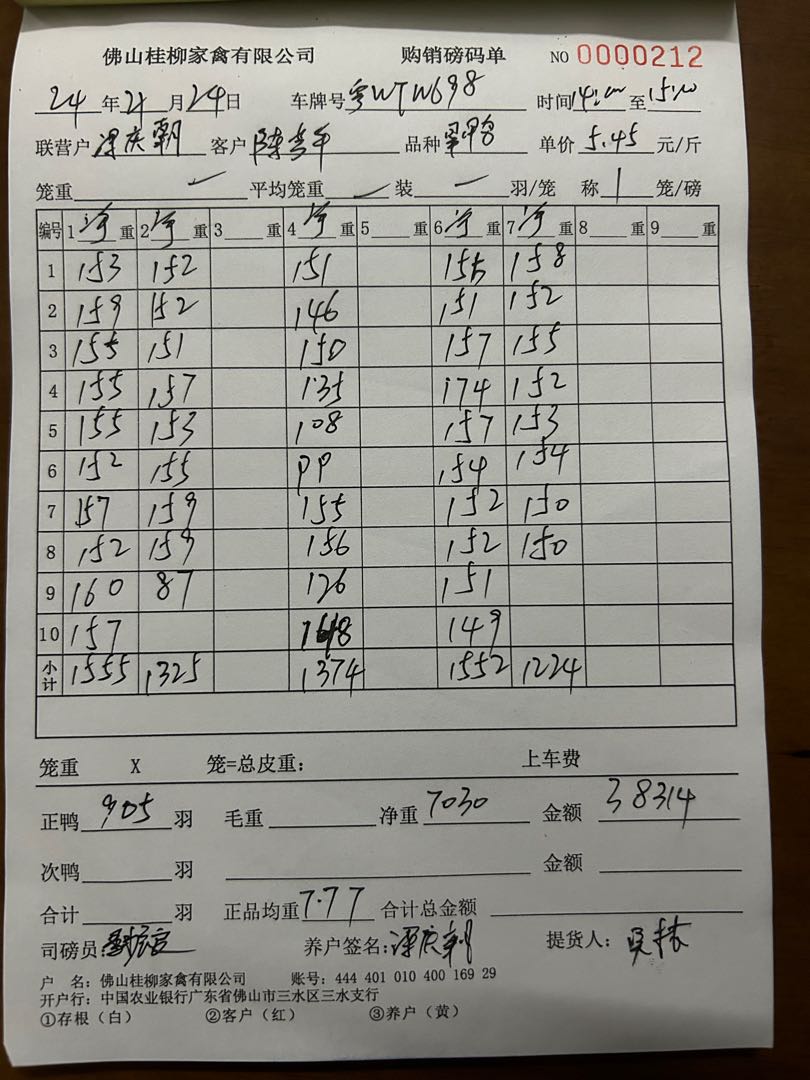 佛山桂柳家禽有限公司 购销磅码单 NO 0000212
24年 月24日 车牌号粤WTW698 时间14:00至15:10
联营户 庆朝 客户 陈 品种 单价5.45元/斤
笼重 平均笼重 装 羽/笼 称1笼/磅
编号 1净重 2净重 3重 4净重 5重 6净重 7净重 8重 9重
1 153 152 151 155 158
2 159 152 146 151 152
3 155 151 150 157 155
4 155 157 135 174 152
5 155 153 108 157 153
6 152 155 PP 154 154
7 157 159 155 152 150
8 152 159 156 152 150
9 160 87 126 151
10 157 149
小计 1555 1325 1374 1552 1224
笼重 X 笼=总皮重: 上车费
正鸭905羽 毛重 净重7030 金额38314
次鸭 羽 金额
合计 羽 正品均重7.77 合计总金额
司磅员: 养户签名: 庆朝 提货人: 吴
户 名: 佛山桂柳家禽有限公司 账号: 444 401 010 400 169 29
开户行: 中国农业银行广东省佛山市三水区三水支行
①存根(白) ②客户(红) ③养户(黄)